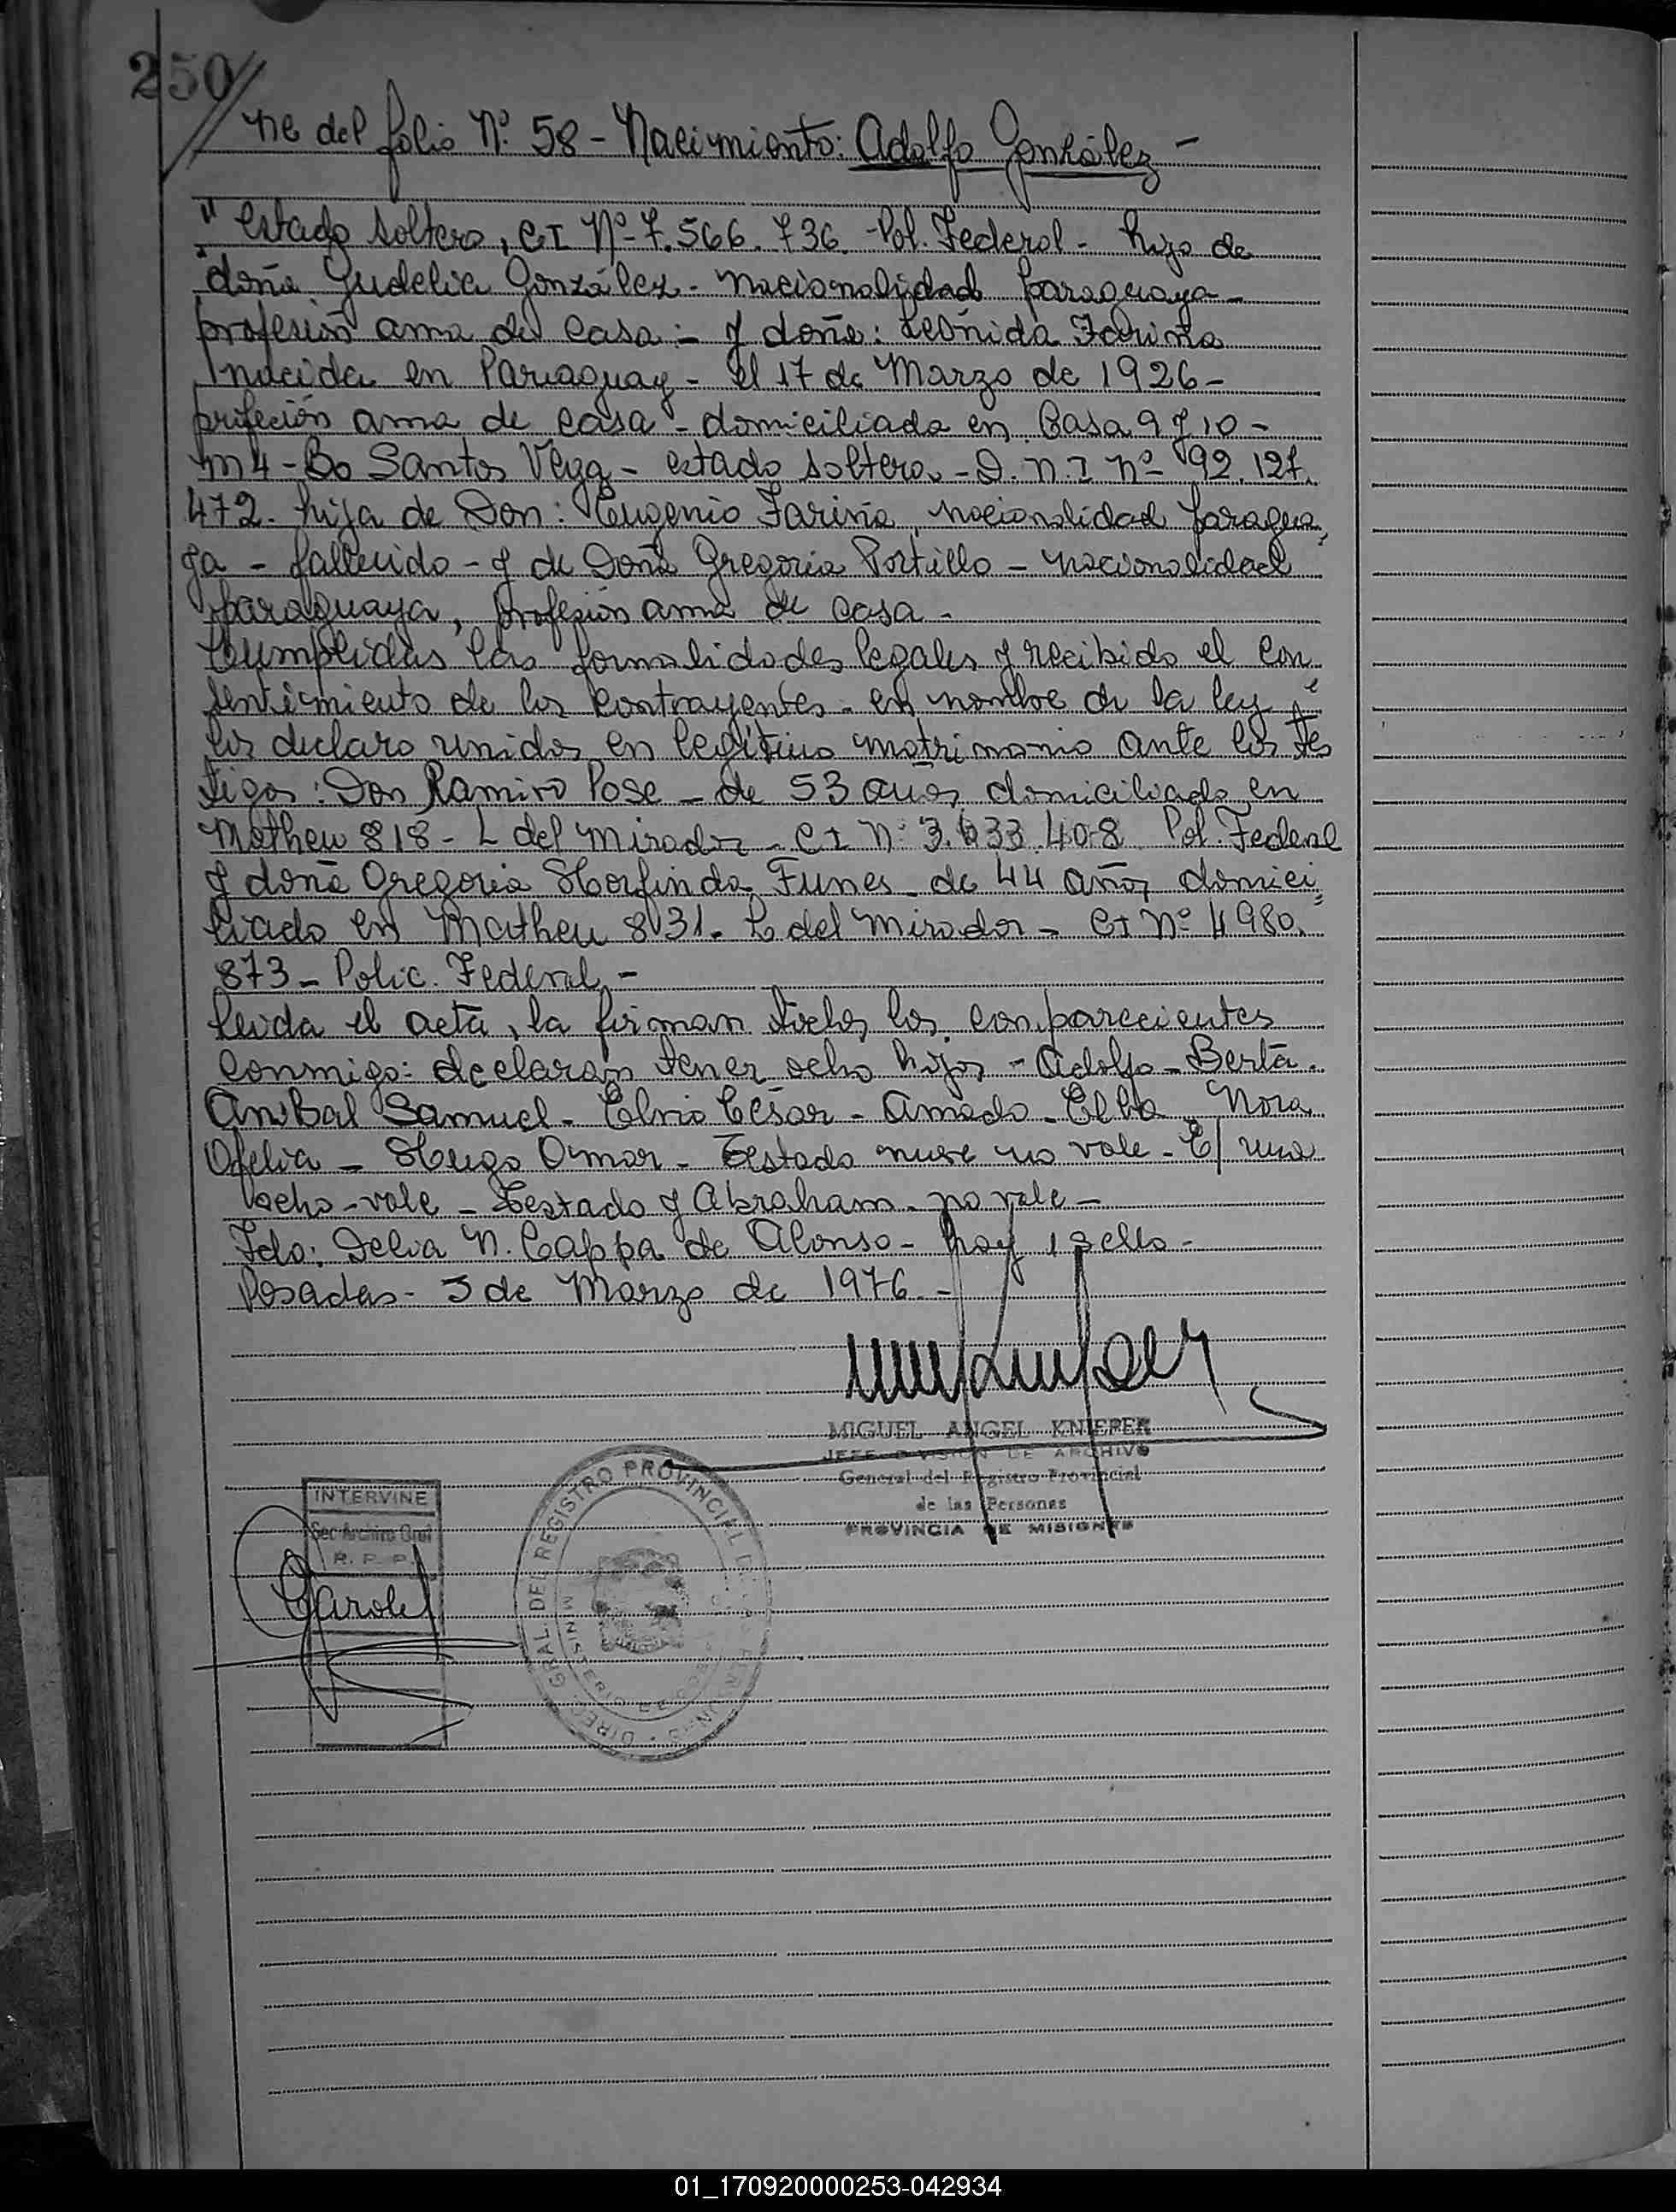 250
ne del folio Nº 58 - Nacimiento: Adolfo González -
" estado soltero, CI Nº - 7.566.736. Pol. Federal - hijo de
doña Gudelia González - nacionalidad paraguaya -
profesión ama de casa - y doña: Leónida Fariña
nacida en Paraguay - el 17 de Marzo de 1926 -
profeción ama de casa - domiciliada en Casa 9 y 10 -
m 4 - Bo Santos Vega - estado soltera - D.N.I nº 92.127.
472. hija de Don: Eugenio Fariña, nacionalidad paragua
ya - fallecido - y de Doña Gregoria Portillo - nacionalidad
paraguaya, profesión ama de casa -
Cumplidas las formalidades legales y recibido el con
sentimiento de los contrayentes - en nombre de la ley
los declaro unidos en legítimo matrimonio ante los tes
tigos: Don Ramiro Pose - de 53 años, domiciliado en
Matheu 818 - L del Mirador - CI Nº 3.633.408 Pol. Federal
y doña Gregoria Horfinda Funes - de 44 años, domici
liado en Matheu 831. L del Mirador - CI Nº 4980.
873 - Polic. Federal, -
Leida el acta, la firman todos los comparecientes
conmigo: declaran tener ocho hijos - Adolfo - Berta.
Anibal Samuel - Elvio César - Amado - Elba - Nora
Ofelia - Hugo Omar - Testado nueve no vale - E/
ocho - vale - Testado y Abraham - no vale -
Fdo: Delia N. Cappa de Alonso - hay 1 sello -
Posadas - 3 de Marzo de 1976. -
MIGUEL ANGEL KNIEPER
JEFE DIVISION DE ARCHIVO
General del Registro Provincial
de las Personas
PROVINCIA DE MISIONES
INTERVINE
Sec Archivo Gral
R. P. P.
DIREC. GRAL. DEL REGISTRO PROVINCIAL
MINISTERIO
01_170920000253-042934